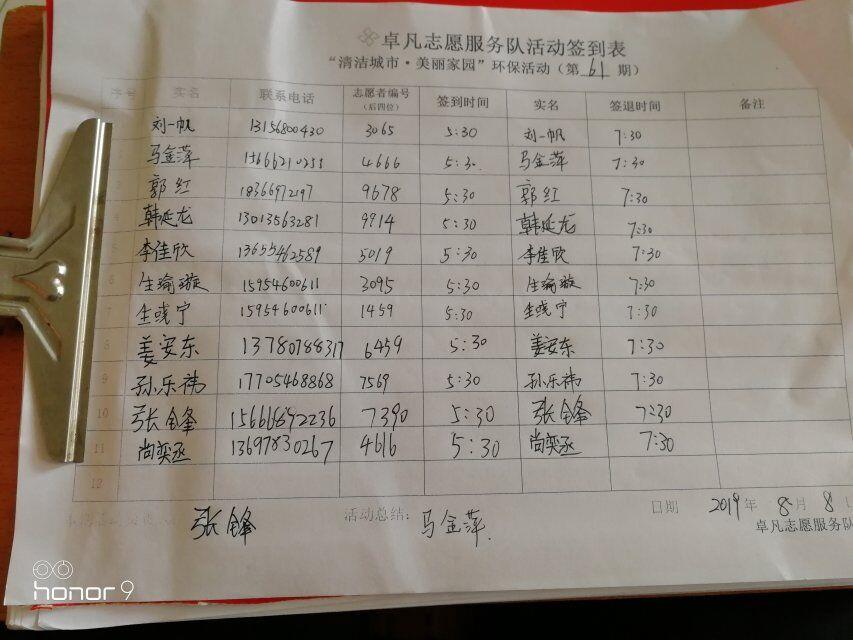 卓凡志愿服务队活动签到表
“清洁城市·美丽家园”环保活动（第 61 期）
序号 实名 联系电话 志愿者编号（后四位） 签到时间 实名 签退时间 备注
刘一帆 13156800430 3065 5:30 刘一帆 7:30
马金萍 4666 5:30 马金萍 7:30
3 郭红 18366972197 9678 5:30 郭红 7:30
4 韩延龙 13013563281 9914 5:30 韩延龙 7:30
5 李佳欣 13655462589 5019 5:30 李佳欣 7:30
6 生瑜璇 15954600611 3095 5:30 生瑜璇 7:30
7 15954600611 1459 5:30 7:30
8 姜安东 13780788317 6459 5:30 姜安东 7:30
9 孙乐祎 17705468868 7569 5:30 孙乐祎 7:30
10 张锋 15666692236 7390 5:30 张锋 7:30
11 尚奕丞 13697830267 4616 5:30 尚奕丞 7:30
12
张锋 活动总结： 马金萍 日期 2019年 8月 8
卓凡志愿服务队
honor 9